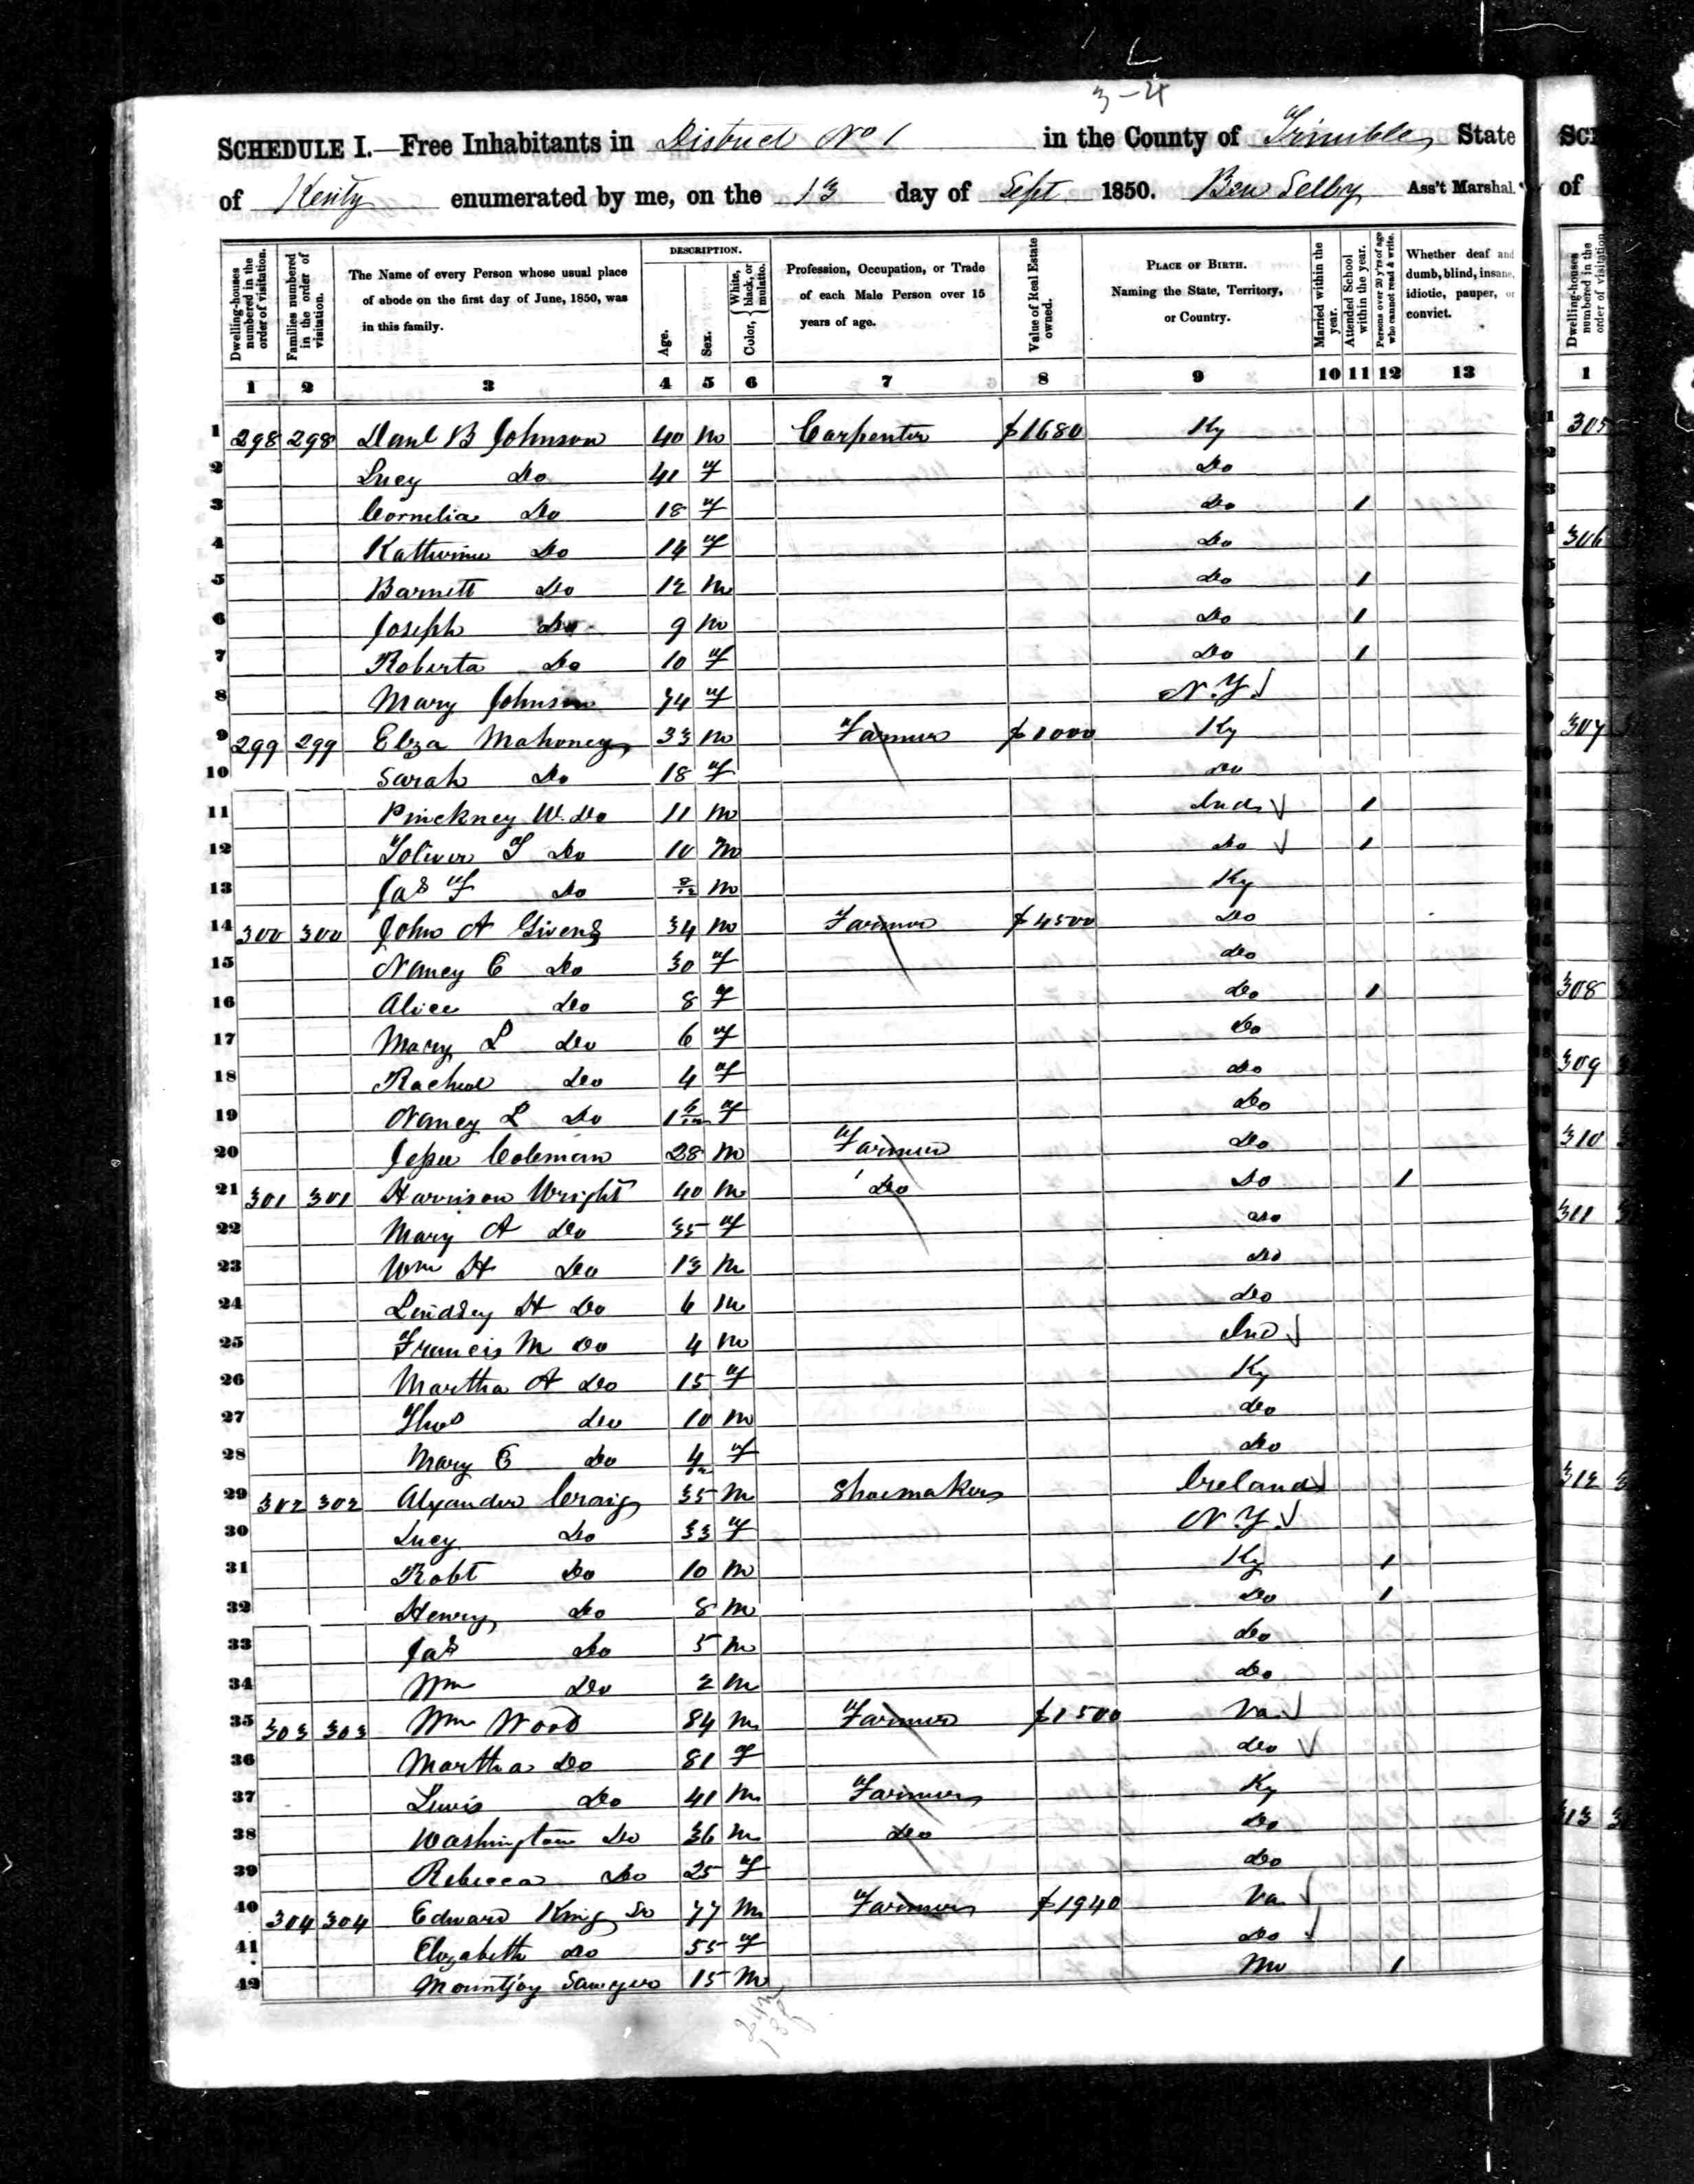 3-4
SCHEDULE I.—Free Inhabitants in District No 1 in the County of Trimble State
of Kenty enumerated by me, on the 13 day of Sept 1850. Ben Selby Ass't Marshal.
Dwelling-houses numbered in the order of visitation.
Families numbered in the order of visitation.
The Name of every Person whose usual place of abode on the first day of June, 1850, was in this family.
DESCRIPTION.
Age.
Sex.
Color, { White, black, or mulatto.
Profession, Occupation, or Trade of each Male Person over 15 years of age.
Value of Real Estate owned.
PLACE OF BIRTH.
Naming the State, Territory, or Country.
Married within the year.
Attended School within the year.
Persons over 20 y'rs of age who cannot read & write.
Whether deaf and dumb, blind, insane, idiotic, pauper, or convict.
1 2 3 4 5 6 7 8 9 10 11 12 13
1 298 298 Danl B Johnson 40 m Carpenter $1680 Ky
2 Lucy Do 41 f Do
3 Cornelia Do 18 f Do 1
4 Katherine Do 14 f Do
5 Barnett Do 12 m Do 1
6 Joseph Do 9 m Do 1
7 Roberta Do 10 f Do 1
8 Mary Johnson 74 f N.Y.
9 299 299 Elza Mahoney 33 m Farmer $1000 Ky
10 Sarah Do 18 f Do
11 Pinckney W. Do 11 m Ind 1
12 Toliver T Do 10 m Do 1
13 Jas F Do m Ky
14 300 300 John A Givens 34 m Farmer $4500 Do
15 Nancy E Do 30 f do
16 Alice Do 8 f do 1
17 Mary L Do 6 f Do
18 Racheal Do 4 f do
19 Nancy L Do f Do
20 Jesse Coleman 28 m Farmer Do
21 301 301 Harrison Wright 40 m Do Do 1
22 Mary A Do 35 f Do
23 Wm H Do 13 m Do
24 Lindsey H Do 6 m Do
25 Francis M Do 4 m Ind
26 Martha A Do 15 f Ky
27 Thos Do 10 m do
28 Mary E Do 4/12 f do
29 302 302 Alexander Craig 35 m Shoemaker Ireland
30 Lucy Do 33 f N.Y.
31 Robt Do 10 m Ky 1
32 Henry Do 8 m Do 1
33 Jas Do 5 m do
34 Wm Do 2 m do
35 303 303 Wm Wood 84 m Farmer $1500 Va
36 Martha Do 81 f do
37 Lewis Do 41 m Farmer Ky
38 Washington Do 36 m Do Do
39 Rebecca Do 25 f do
40 304 304 Edward King Sr 77 m Farmer $1940 Va
41 Elizabeth Do 55 f Do
42 Mountjoy Sawyer 15 m Mo 1
SCH
of
Dwelling-houses numbered in the order of visitation
1
305
306
307
308
309
310
311
312
313